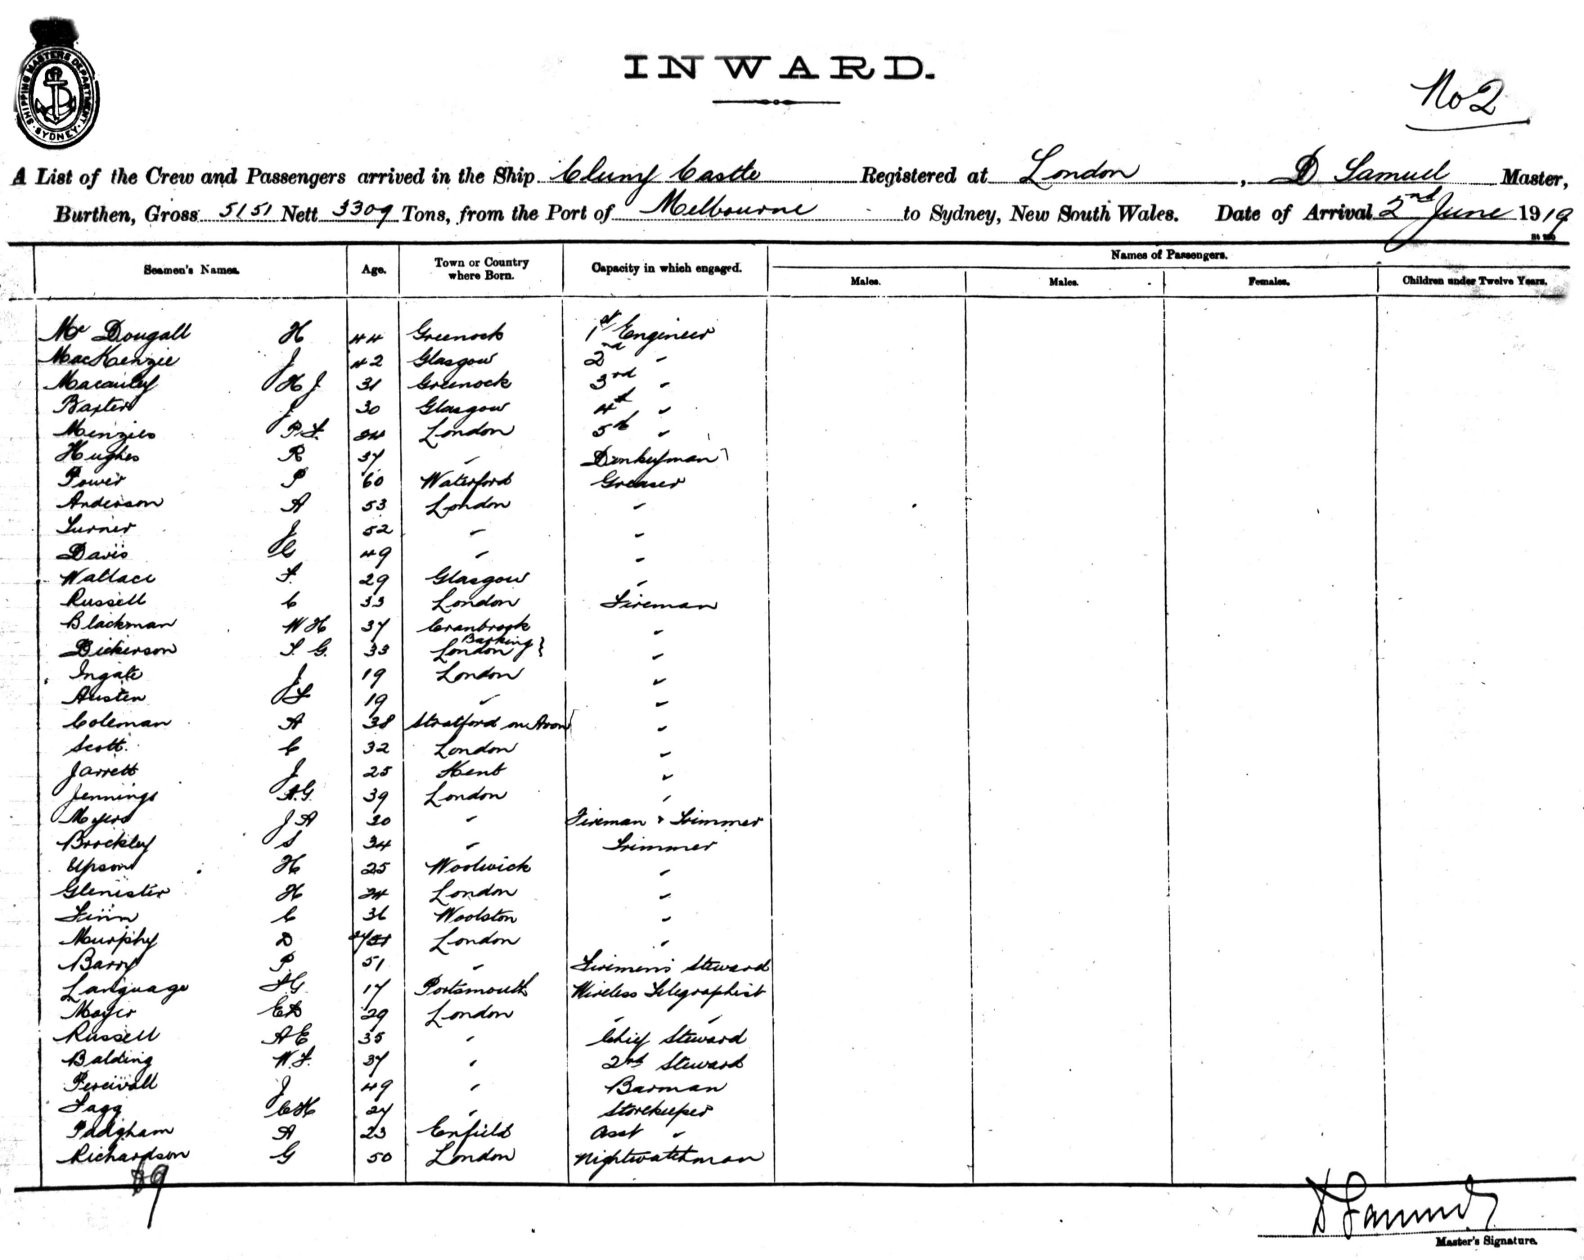 SHIPPING MASTERS DEPARTMENT. SYDNEY.
INWARD.
No 2
A List of the Crew and Passengers arrived in the Ship Cluny Castle Registered at London, D Samuel Master,
Burthen, Gross 5151 Nett 3309 Tons, from the Port of Melbourne to Sydney, New South Wales. Date of Arrival 2nd June 1919
Seamen's Names. Age. Town or Country where Born. Capacity in which engaged. Names of Passengers.
Males. Males. Females. Children under Twelve Years.
Mc Dougall H 44 Greenock 1st Engineer
MacKenzie J 42 Glasgow 2nd "
Macauley H J 31 Greenock 3rd "
Baxter J 30 Glasgow 4th "
Menzies P. F. 24 London 5th "
Hughes R 37 " Donkeyman
Power P 60 Waterford Greaser
Anderson A 53 London "
Turner J 52 " "
Davis C 49 " "
Wallace F. 29 Glasgow "
Russell C 33 London Fireman
Blackman W H 37 Cranbrook "
Dickerson T. G. 33 London Barking "
Ingate J 19 London "
Austen J F 19 " "
Coleman A 38 Stratford on Avon "
Scott C 32 London "
Jarrett J 25 Kent "
Jennings A.G. 39 London "
Myers J A 30 " Fireman & Trimmer
Brockley S 34 " Trimmer
Upson H 25 Woolwich "
Glenister H 24 London "
Finn C 36 Woolston "
Murphy D London "
Barry P 51 " Firemen's Steward
Language F G 17 Portsmouth Wireless Telegraphist
Mayer 29 London " "
Russell A E 35 " Chief Steward
Balding W. F. 37 " 2nd Steward
Percivall J 49 " Barman
Fagg C H 27 " Storekeeper
Padgham A 23 Enfield Asst "
Richardson G 50 London Nightwatchman
D Samuel
Master's Signature.